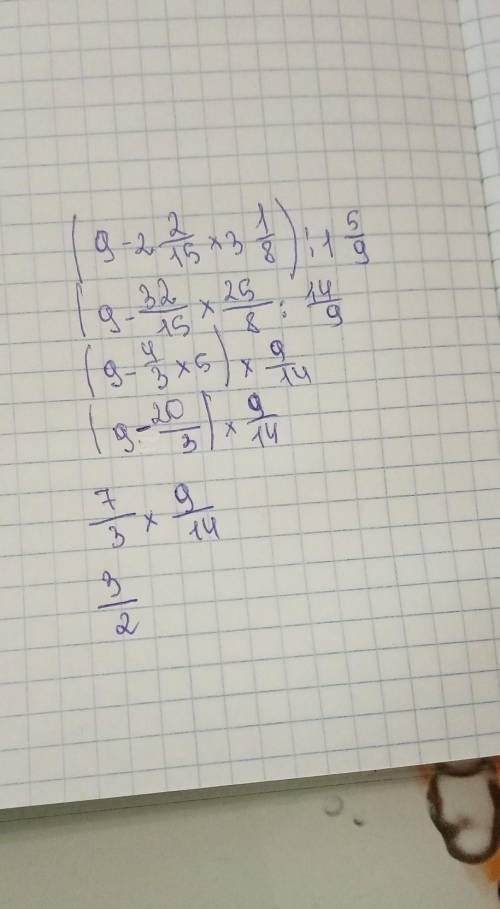 (9 - 2 2/15 × 3 1/8) : 1 5/9
(9 - 32/15 × 25/8 : 14/9
(9 - 4/3 × 5) × 9/14
(9 - 20/3) × 9/14
7/3 × 9/14
3/2